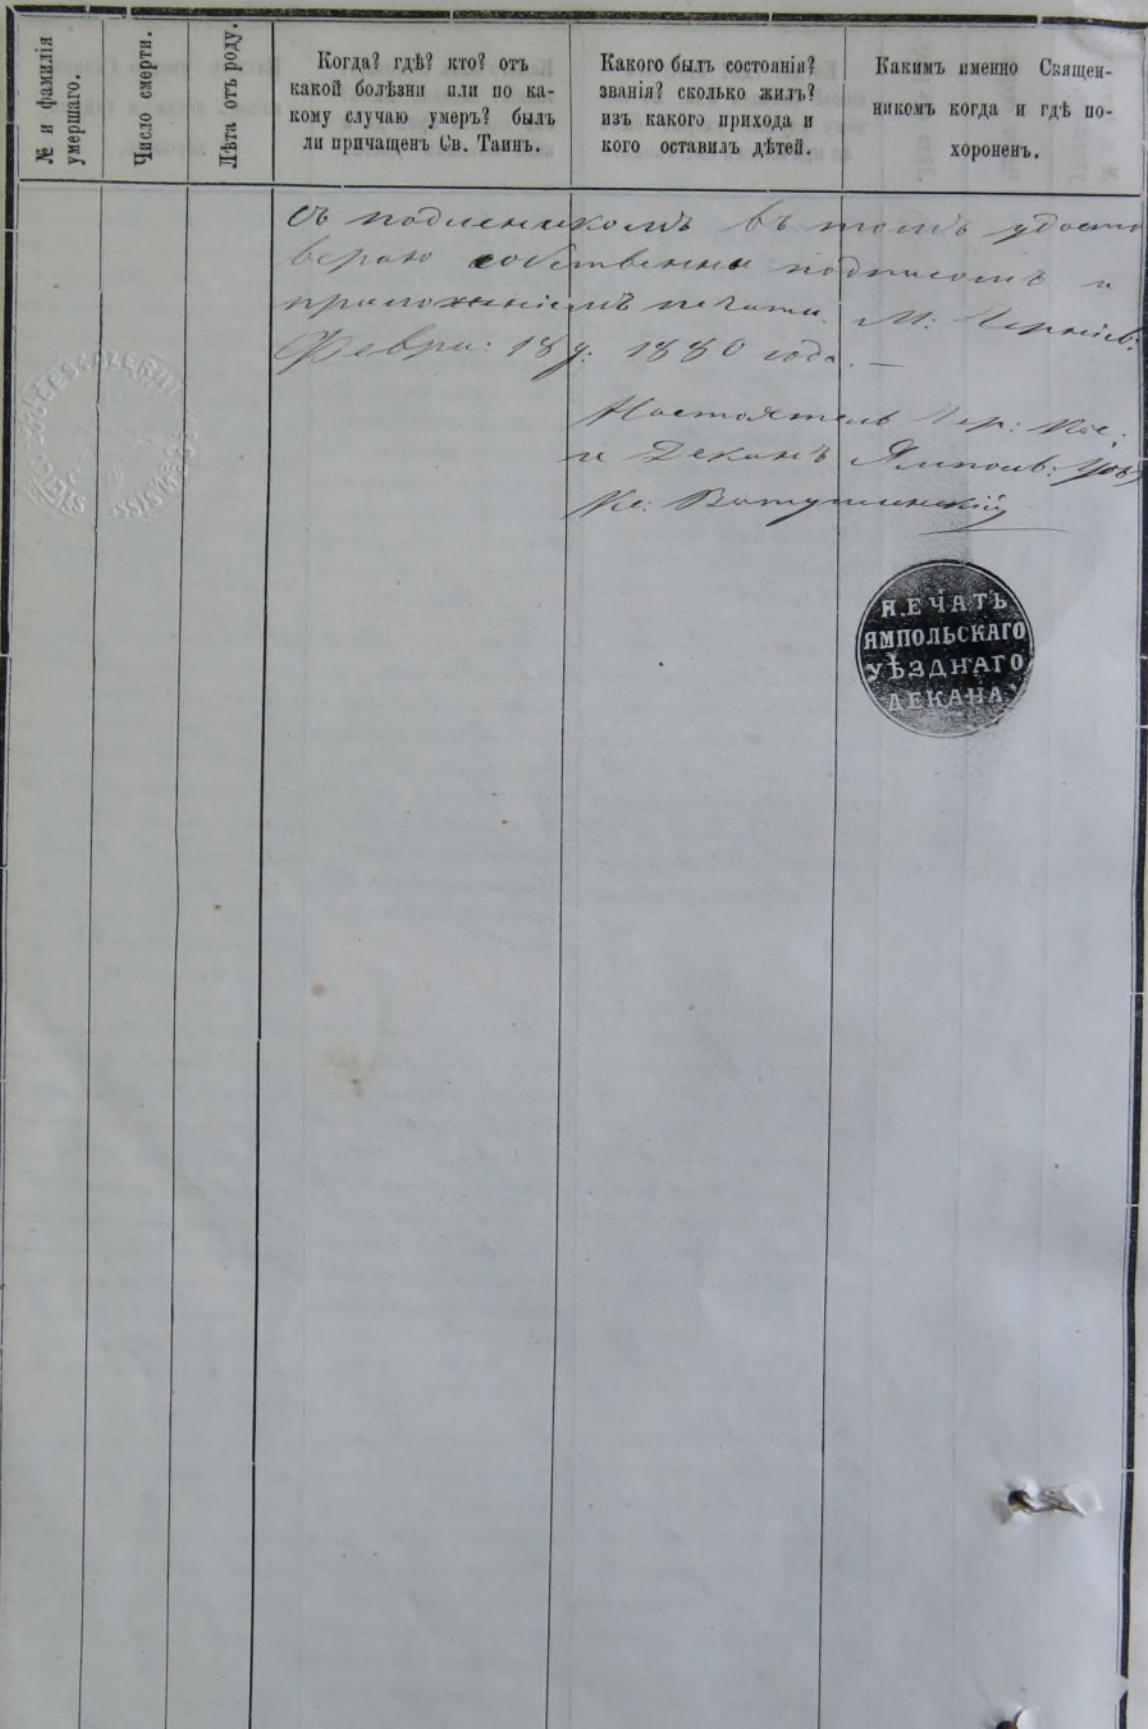 № и фамилія
умершаго.
Число смерти.
Лѣта отъ роду.
Когда? гдѣ? кто? отъ
какой болѣзни или по ка-
кому случаю умеръ? былъ
ли причащенъ Св. Таинъ.
Какого былъ состоянія?
званія? сколько жилъ?
изъ какого прихода и
кого оставилъ дѣтей.
Какимъ именно Священ-
никомъ когда и гдѣ по-
хороненъ.
съ подленикомъ въ томъ удосто
веряю собственны подписомъ и
приложеніемъ печати. М:
Февра: 18 д: 1880 года. —
Настоятель Чер: Кос:
и Деканъ Ямпольв:
Кс:
ПЕЧАТЬ
ЯМПОЛЬСКАГО
УѢЗДНАГО
ДЕКАНА